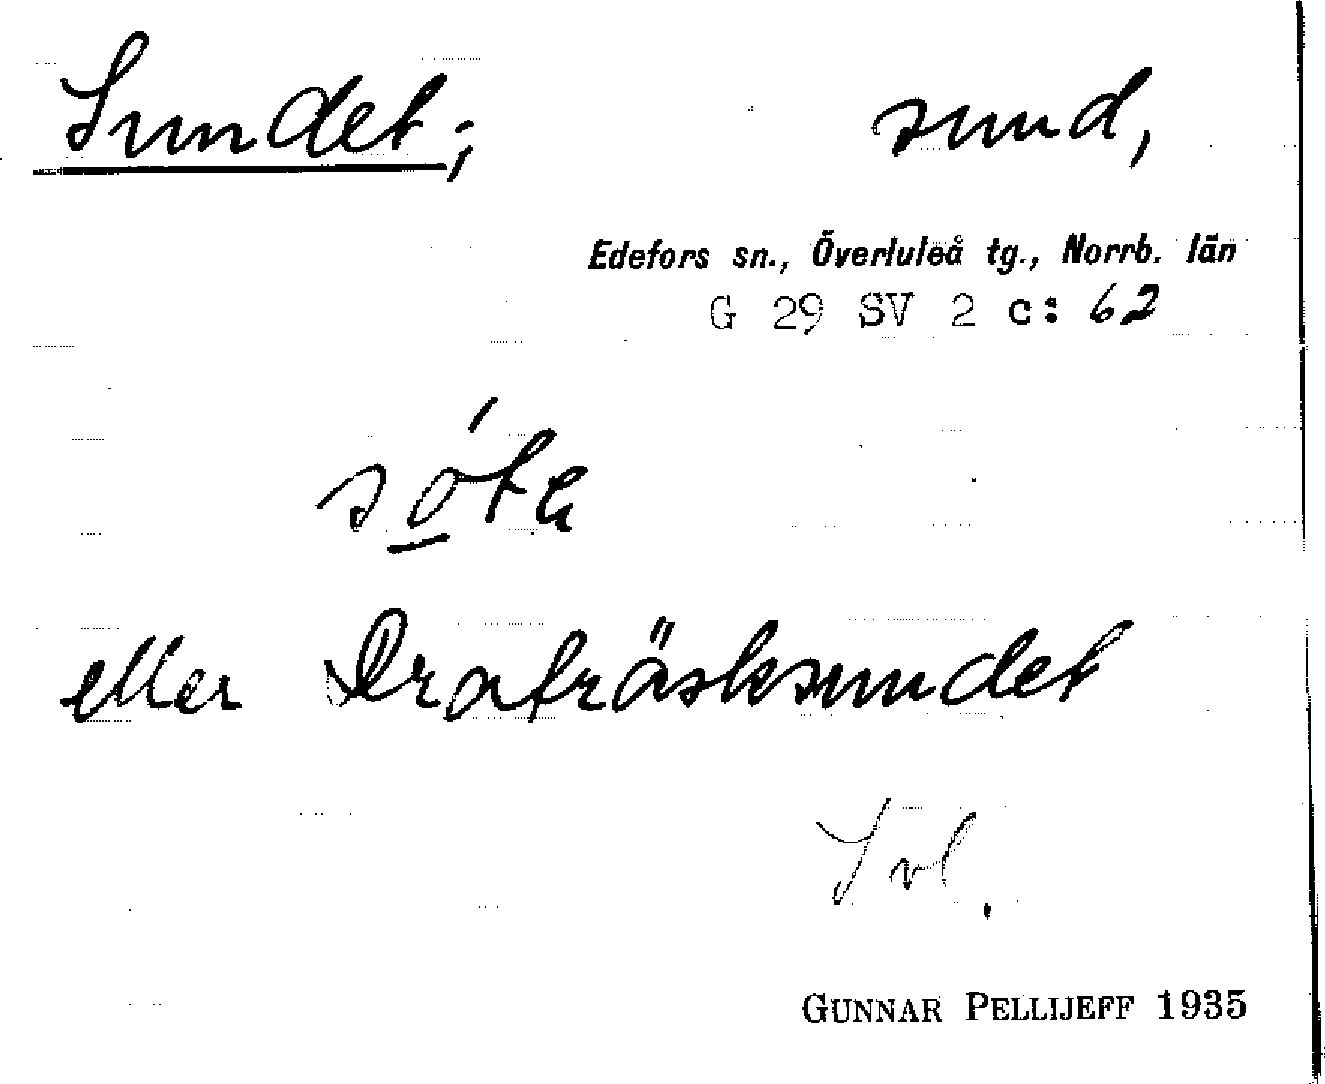 Sundet; sund,
Edefors sn., Överluleå tg., Norrb. län
G 29 SV 2 c: 62
eller
GUNNAR PELLIJEFF 1935